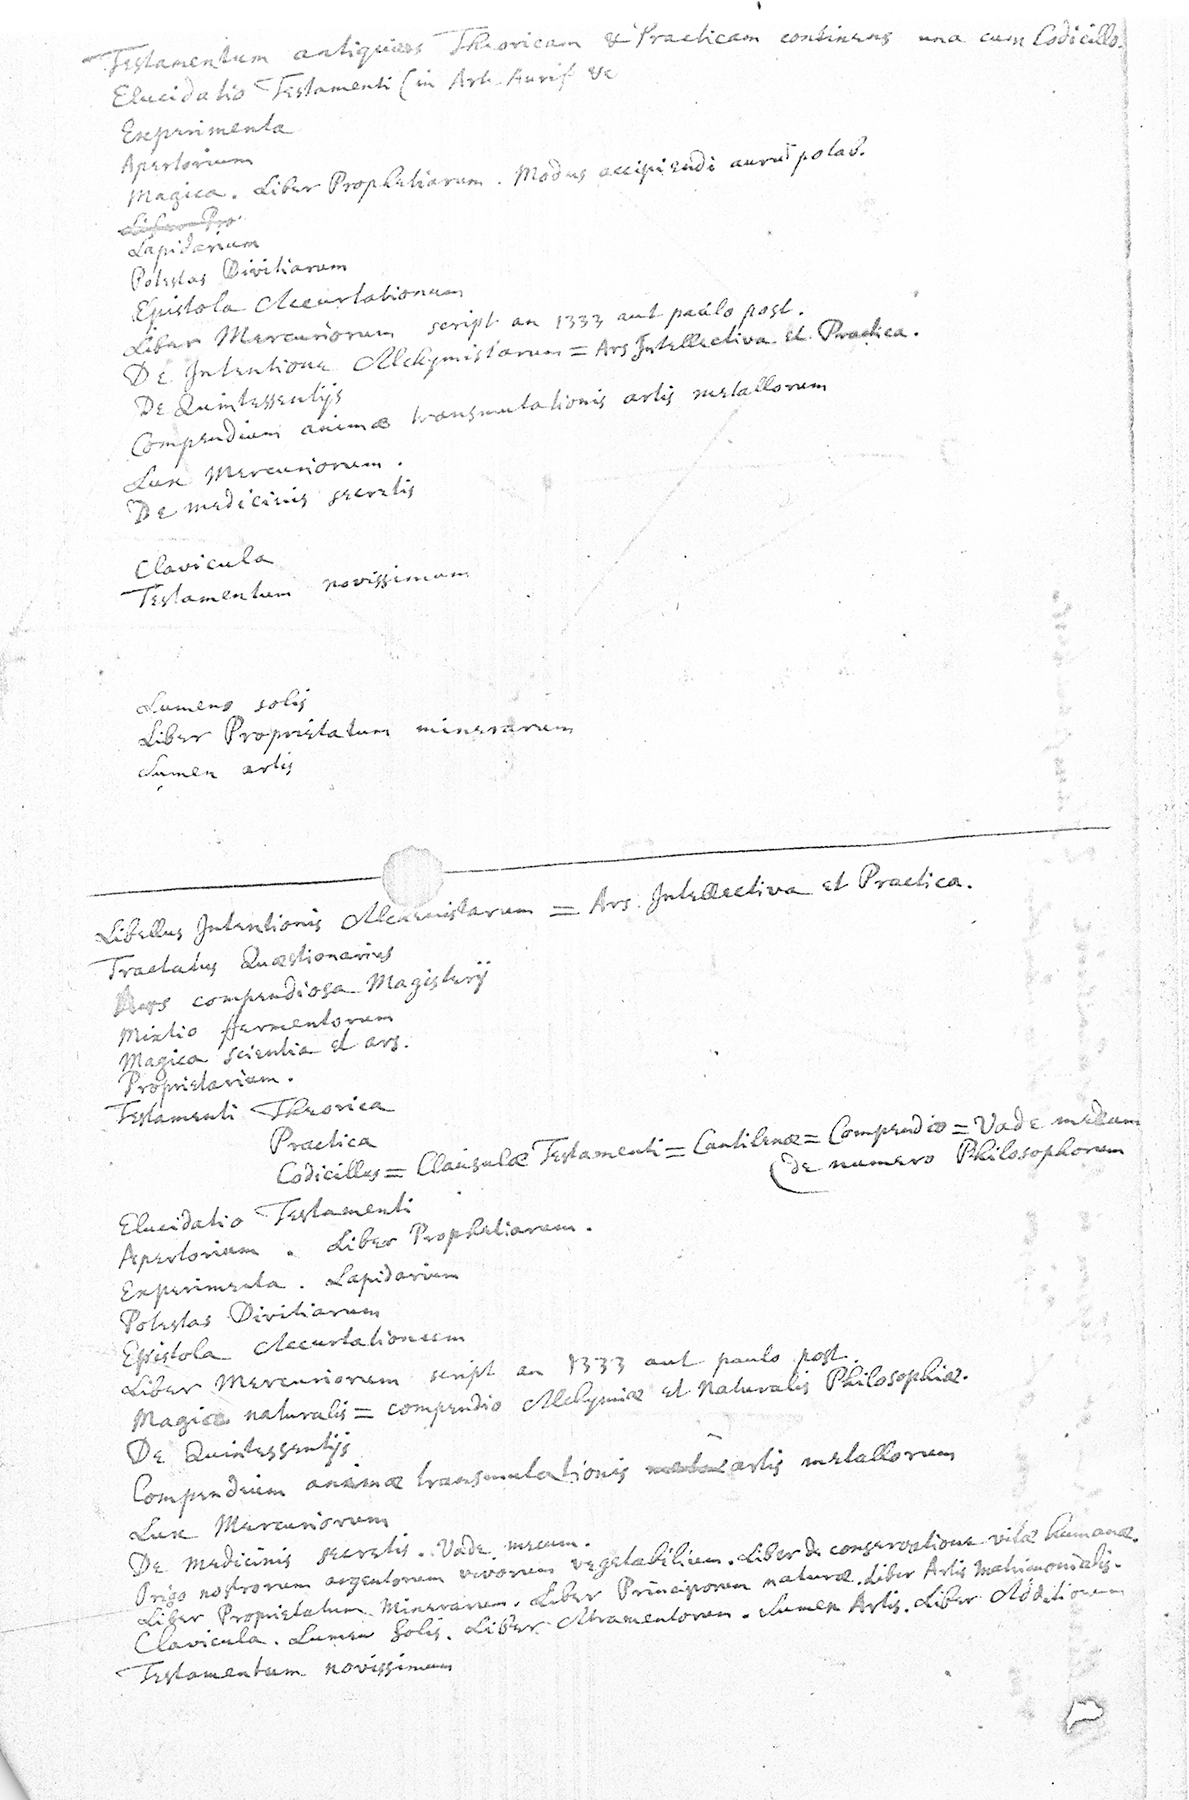 Testamentum antiquius Theoricam & Practicam continens una cum Codicillo.
Elucidatio Testamenti (in Art. Aurif &c
Experimenta
Apertorium
Magica. Liber Prophetiarum. Modus accipiendi aurum potab.
Liber Pro
Lapidarium
Potestas Divitiarum
Epistola Accurtationum
Liber Mercuriorum script an 1333 aut paulo post.
De Intentione Alchymistarum = Ars Intellectiva et Practica.
De Quintessentijs
Compendium animæ transmutationis artis metallorum
Lux Mercuriorum.
De medicinis secretis
Clavicula
Testamentum novissimum
Lumens solis
Liber Proprietatum minerarum
Lumen artis
Libellus Intentionis Alchemistarum = Ars Intellectiva et Practica.
Tractatus Quæstionarius
Ars compendiosa Magisterij
Mixtio fermentorum
Magica scientia et ars.
Proprietarium.
Testamenti Theorica
Practica
Codicillus = Clausulæ Testamenti = Cantilenæ = Compendio = Vade mecum
(de numero Philosophorum
Elucidatio Testamenti
Apertorium. Liber Prophetiarum.
Experimenta. Lapidarium
Potestas Divitiarum
Epistola Accurtationum
Liber Mercuriorum script an 1333 aut paulo post.
Magica naturalis = compendio Alchymiæ et naturalis Philosophiæ.
De Quintessentijs
Compendium animæ transmutationis artis metallorum
Lux Mercuriorum
De medicinis secretis. Vade mecum.
Origo nostrorum argentorum vivorum vegetabilium. Liber de conservatione vitæ humanæ.
Liber Proprietatum Minerarum. Liber Principiorum naturæ. Liber Artis Matrimonialis.
Clavicula. Lumen Solis. Liber Atramentorum. Lumen Artis. Liber Additionum
Testamentum novissimum